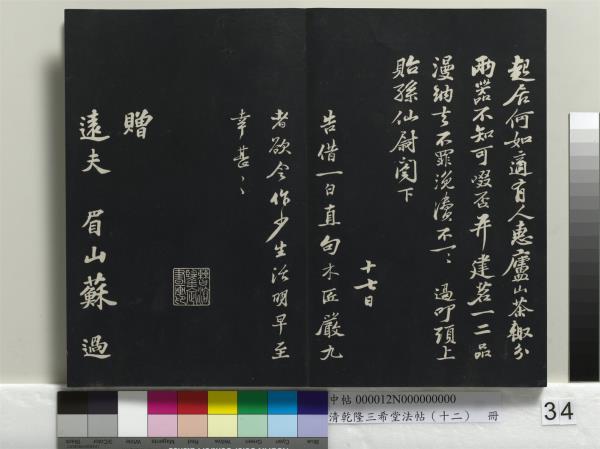 起居何如適有人惠廬山茶輙分
兩器不知可啜否并建茗一二品
漫納去不罪浼瀆不一〻 過叩頭上
貽孫仙尉閤下
十七日
告借一白直句木匠嚴九
者欲令作少生活明早至
幸甚〻
贈
遠夫 眉山蘇過
中帖 000012N000000000
清乾隆三希堂法帖(十二) 冊
34